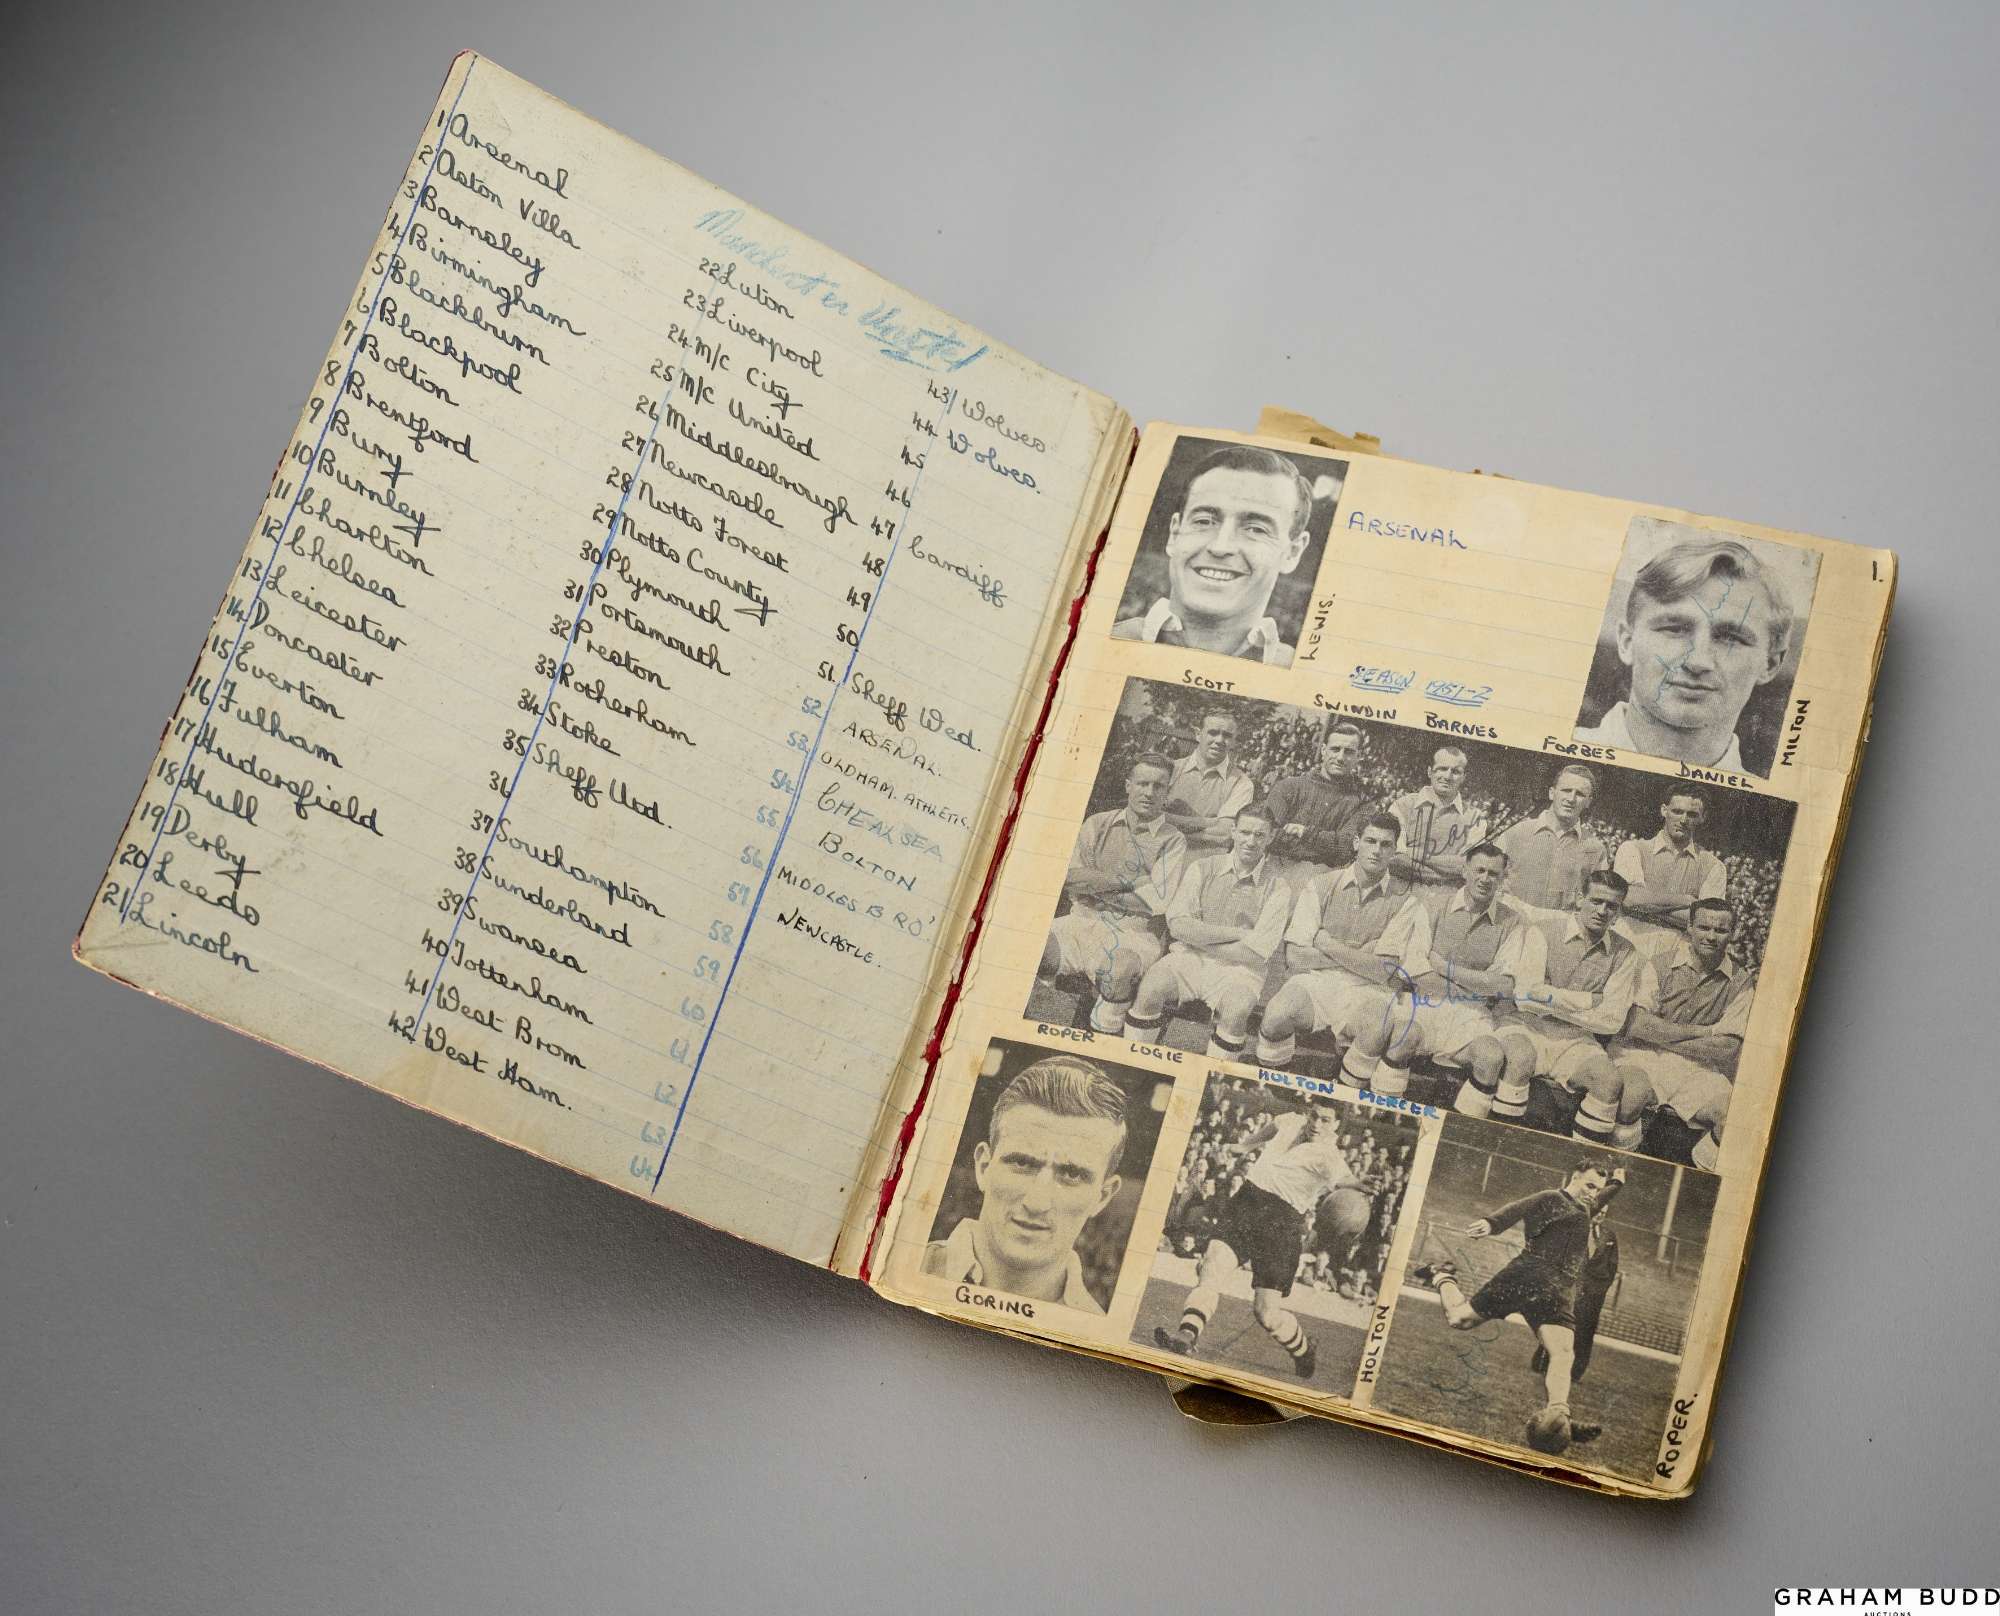 1 Arsenal
2 Aston Villa
3 Barnsley
4 Birmingham
5 Blackburn
6 Blackpool
7 Bolton
8 Brentford
9 Bury
10 Burnley
11 Charlton
12 Chelsea
13 Leicester
14 Doncaster
15 Everton
16 Fulham
17 Hudersfield
18 Hull
19 Derby
20 Leeds
21 Lincoln
Manchester United
22 Luton
23 Liverpool
24 M/c City
25 M/c United
26 Middlesbrough
27 Newcastle
28 Notts Forest
29 Notts County
30 Plymouth
31 Portsmouth
32 Preston
33 Rotherham
34 Stoke
35 Sheff Utd.
36
37 Southampton
38 Sunderland
39 Swansea
40 Tottenham
41 West Brom
42 West Ham.
43 Wolves.
44 Wolves.
45
46
47 Cardiff
48
49
50
51. Sheff Wed.
52 ARSENAL.
53 OLDHAM. ATHLETIC.
54 CHEALSEA
55 BOLTON
56 MIDDLESBRO'
57 NEWCASTLE.
58
59
60
61
62
63
64
1.
ARSENAL
LEWIS.
SEASON 1951-2
MILTON
SCOTT SWINDIN BARNES FORBES DANIEL
ROPER LOGIE HOLTON MERCER
GORING
HOLTON
ROPER.
GRAHAM BUDD
AUCTIONS